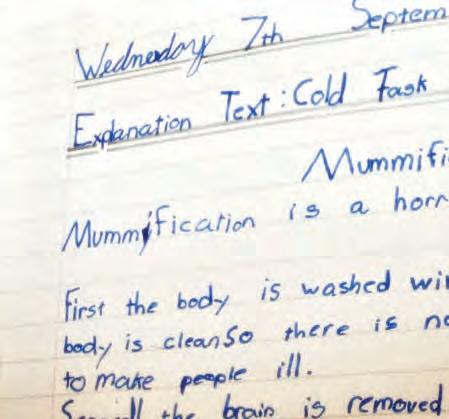 Wednesday 7th Septem
Explanation Text: Cold Task
Mummifi
Mummification is a horr
First the body is washed wi
body is clean So there is no
to make people ill.
the brain is removed